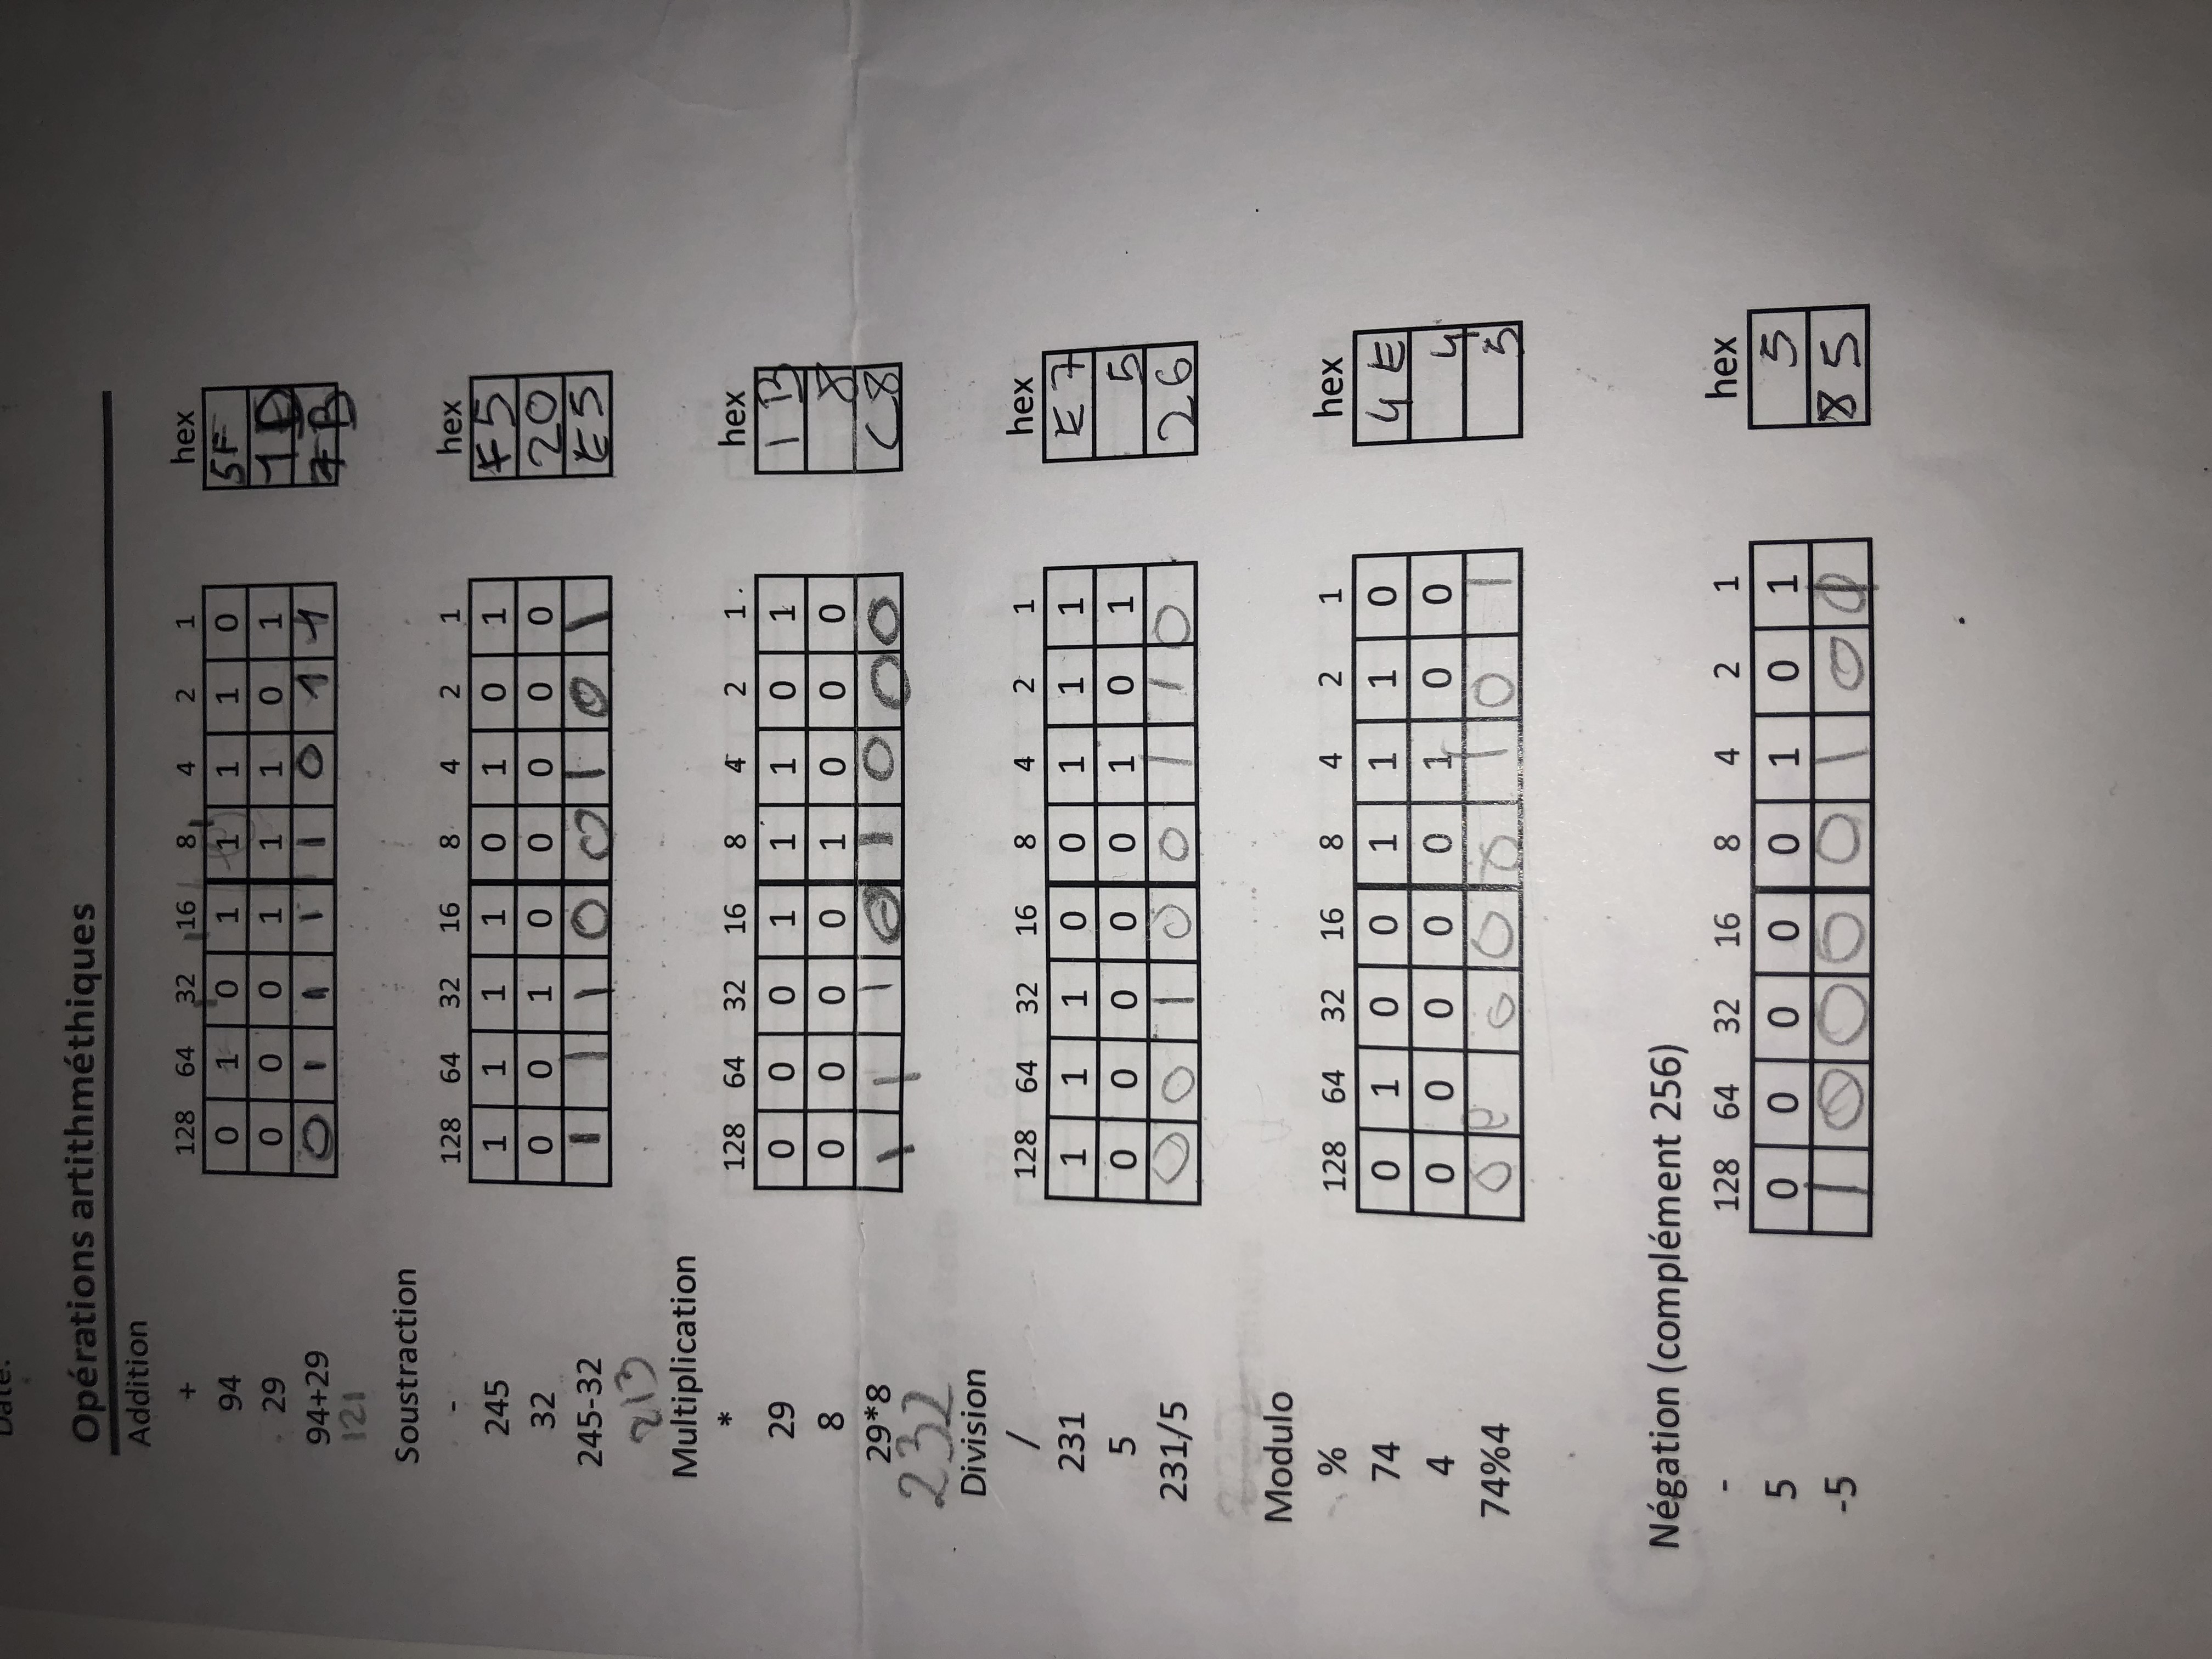 Date:
Opérations artithméthiques
Addition
+ 128 64 32 16 8 4 2 1 hex
94 0 1 0 1 1 1 1 0 5F
29 0 0 0 1 1 1 0 1 1D
94+29 0 1 1 1 1 0 1 1 7B
121
Soustraction
- 128 64 32 16 8 4 2 1 hex
245 1 1 1 1 0 1 0 1 F5
32 0 0 1 0 0 0 0 0 20
245-32 1 1 1 0 0 1 0 1 E5
213
Multiplication
* 128 64 32 16 8 4 2 1 hex
29 0 0 0 1 1 1 0 1 1B
8 0 0 0 0 1 0 0 0 8
29*8 1 1 1 0 1 0 0 0 C8
232
Division
/ 128 64 32 16 8 4 2 1 hex
231 1 1 1 0 0 1 1 1 E7
5 0 0 0 0 0 1 0 1 5
231/5 0 0 1 0 0 1 1 0 26
Modulo
% 128 64 32 16 8 4 2 1 hex
74 0 1 0 0 1 1 1 0 4E
4 0 0 0 0 0 1 0 0 4
74%4 0 0 0 0 0 1 0 1 5
Négation (complément 256)
- 128 64 32 16 8 4 2 1 hex
5 0 0 0 0 0 1 0 1 5
-5 1 0 0 0 0 1 0 1 85